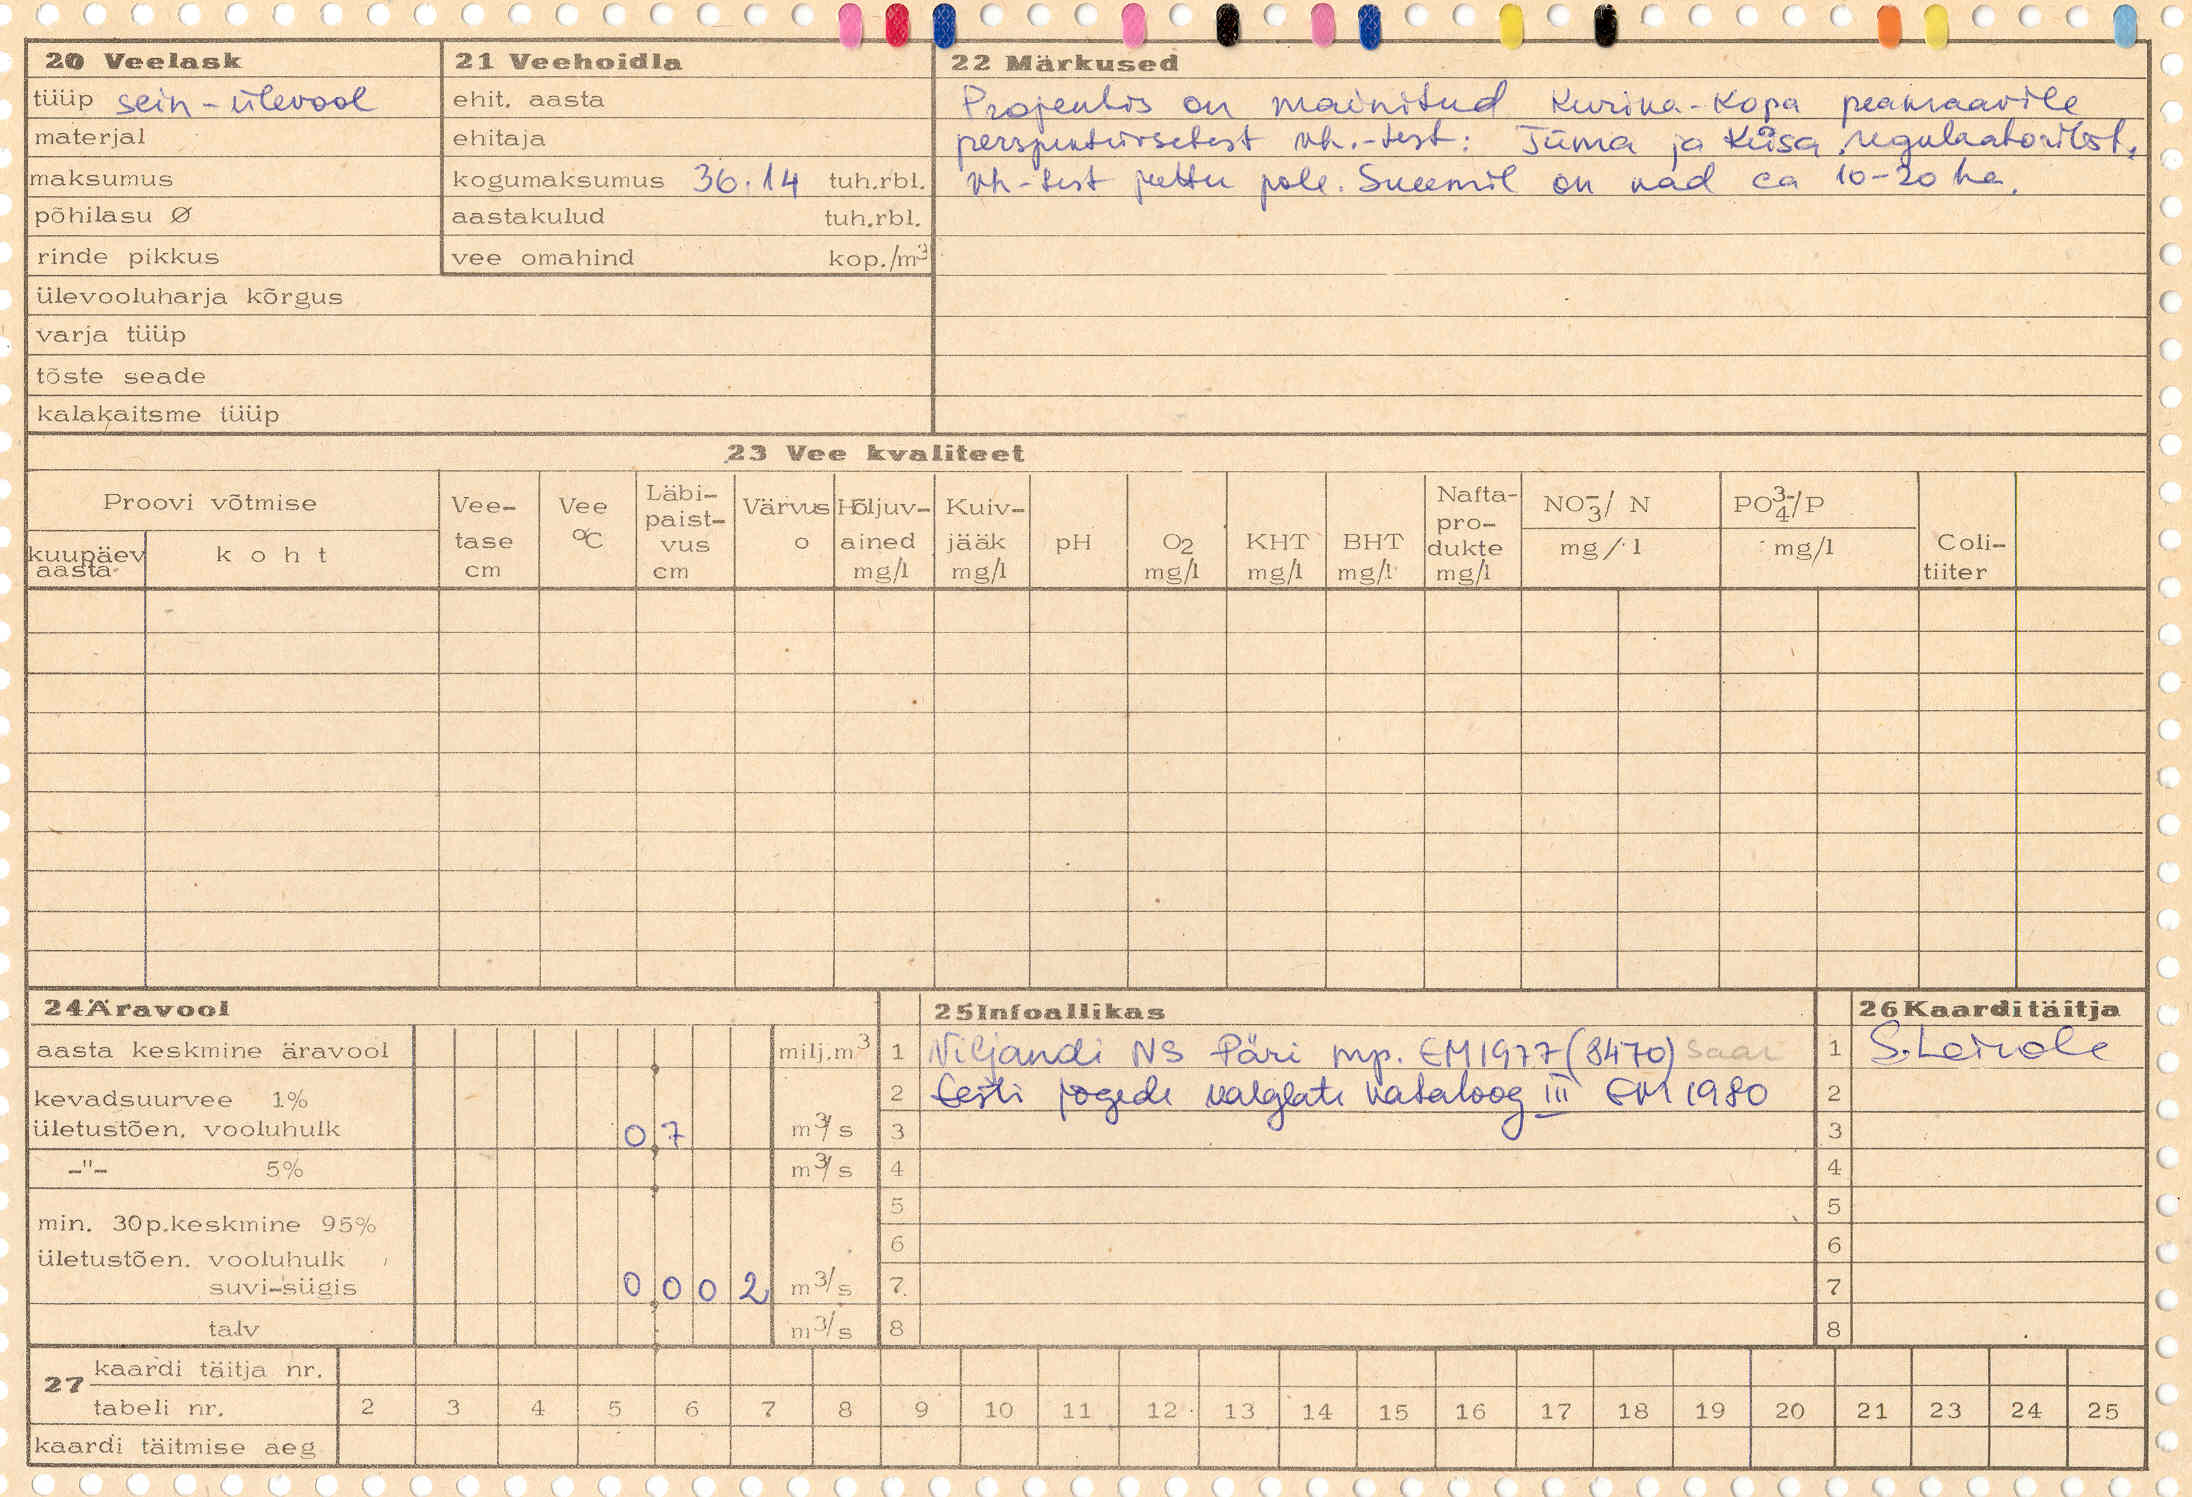 20 Veelask
tüüp sein-ülevool
materjal
maksumus
põhilasu Ø
rinde pikkus
ülevooluharja kõrgus
varja tüüp
tõste seade
kalakaitsme tüüp
21 Veehoidla
ehit. aasta
ehitaja
kogumaksumus 36.14 tuh.rbl.
aastakulud tuh.rbl.
vee omahind kop./m³
22 Märkused
Projektis on mainitud Kurika-Kopa peakraavile
perspektiivsetest vh.-test: Jüma ja Küsa, regulaatoritest,
vh-test juttu pole. Suuemil on nad ca 10-20 ha.
23 Vee kvaliteet
Proovi võtmise
kuupäev aasta
koht
Vee-tase cm
Vee °C
Läbi-paist-vus cm
Värvus o
Hõljuv-ained mg/l
Kuiv-jääk mg/l
pH
O2 mg/l
KHT mg/l
BHT mg/l
Nafta-pro-dukte mg/l
NO3-/ N mg/l
PO4 3-/P mg/l
Coli-tiiter
24 Äravool
aasta keskmine äravool milj.m³
kevadsuurvee 1%
ületustõen. vooluhulk 0 7 m³/s
-"- 5% m³/s
min. 30p.keskmine 95%
ületustõen. vooluhulk
suvi-sügis 0 0 0 2 m³/s
talv m³/s
25 Infoallikas
1 Viljandi NS Päri mp. EM1977(8470) Saar
2 Eesti jogede valglate kataloog III EM 1980
3
4
5
6
7
8
26 Kaarditäitja
1 S. Leivole
2
3
4
5
6
7
8
27 kaardi täitja nr.
tabeli nr. 2 3 4 5 6 7 8 9 10 11 12 13 14 15 16 17 18 19 20 21 23 24 25
kaardi täitmise aeg